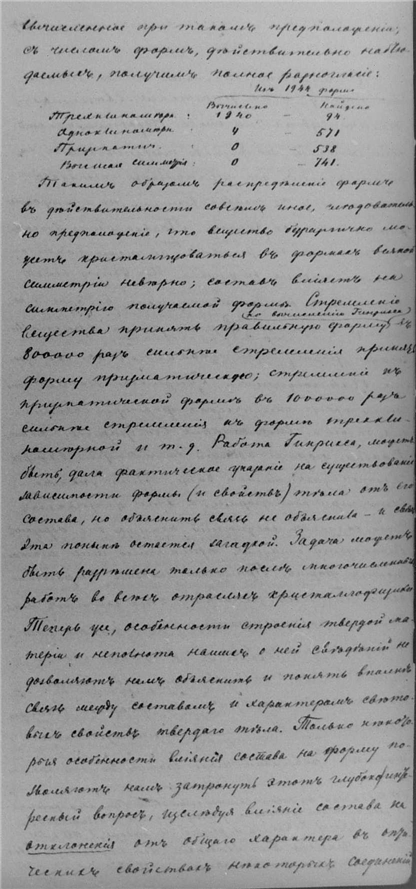 вычисленное при такомъ предположеніи,
съ числомъ формъ, дѣйствительно наблю-
даемыхъ, получимъ полное разногласіе:
Изъ 1944 формъ
Вычислено Найдено
Трехклиномѣрн. : 1940 – 94
Одноклиномѣрн. 4 – 571
Призматич. 0 – 538
Высшая симметрія: 0 – 741.
Такимъ образомъ распредѣленіе формъ
въ дѣйствительности совсѣмъ иное, слѣдователь-
но предположеніе, что вещество безразлично мо-
жетъ кристаллизоваться въ формахъ всякой
симметріи невѣрно; составъ вліяетъ на
симметрію получаемой формы. Стремленіе
по вычисленію Гинрихса
вещества принять правильную форму въ
800000 разъ сильнѣе стремленія принять
форму призматическую; стремленіе къ
призматической формѣ въ 1000000 разъ
сильнѣе стремленія къ формѣ трехкли-
номѣрной и т. д. Работа Гинрихса, можетъ
быть, дала фактическое указаніе на существованіе
зависимости формы (и свойствъ) тѣла отъ его
состава, но объяснить связь не объяснила – и связь
эта понынѣ остается загадкой. Задача можетъ
быть разрѣшена только послѣ многочисленныхъ
работъ во всѣхъ отрасляхъ кристаллофизики
Теперь же, особенности строенія твердой ма-
теріи и неполнота нашихъ о ней свѣдѣній не
дозволяютъ намъ объяснить и понять вполнѣ
связь между составомъ и характеромъ свѣто-
выхъ свойствъ твердаго тѣла. Только нѣкото-
рыя особенности вліянія состава на форму по-
зволяютъ намъ затронуть этотъ глубокоинте-
ресный вопросъ, изслѣдуя вліяніе состава на
отклоненія отъ общаго характера въ опти-
ческихъ свойствахъ нѣкоторыхъ соединеній